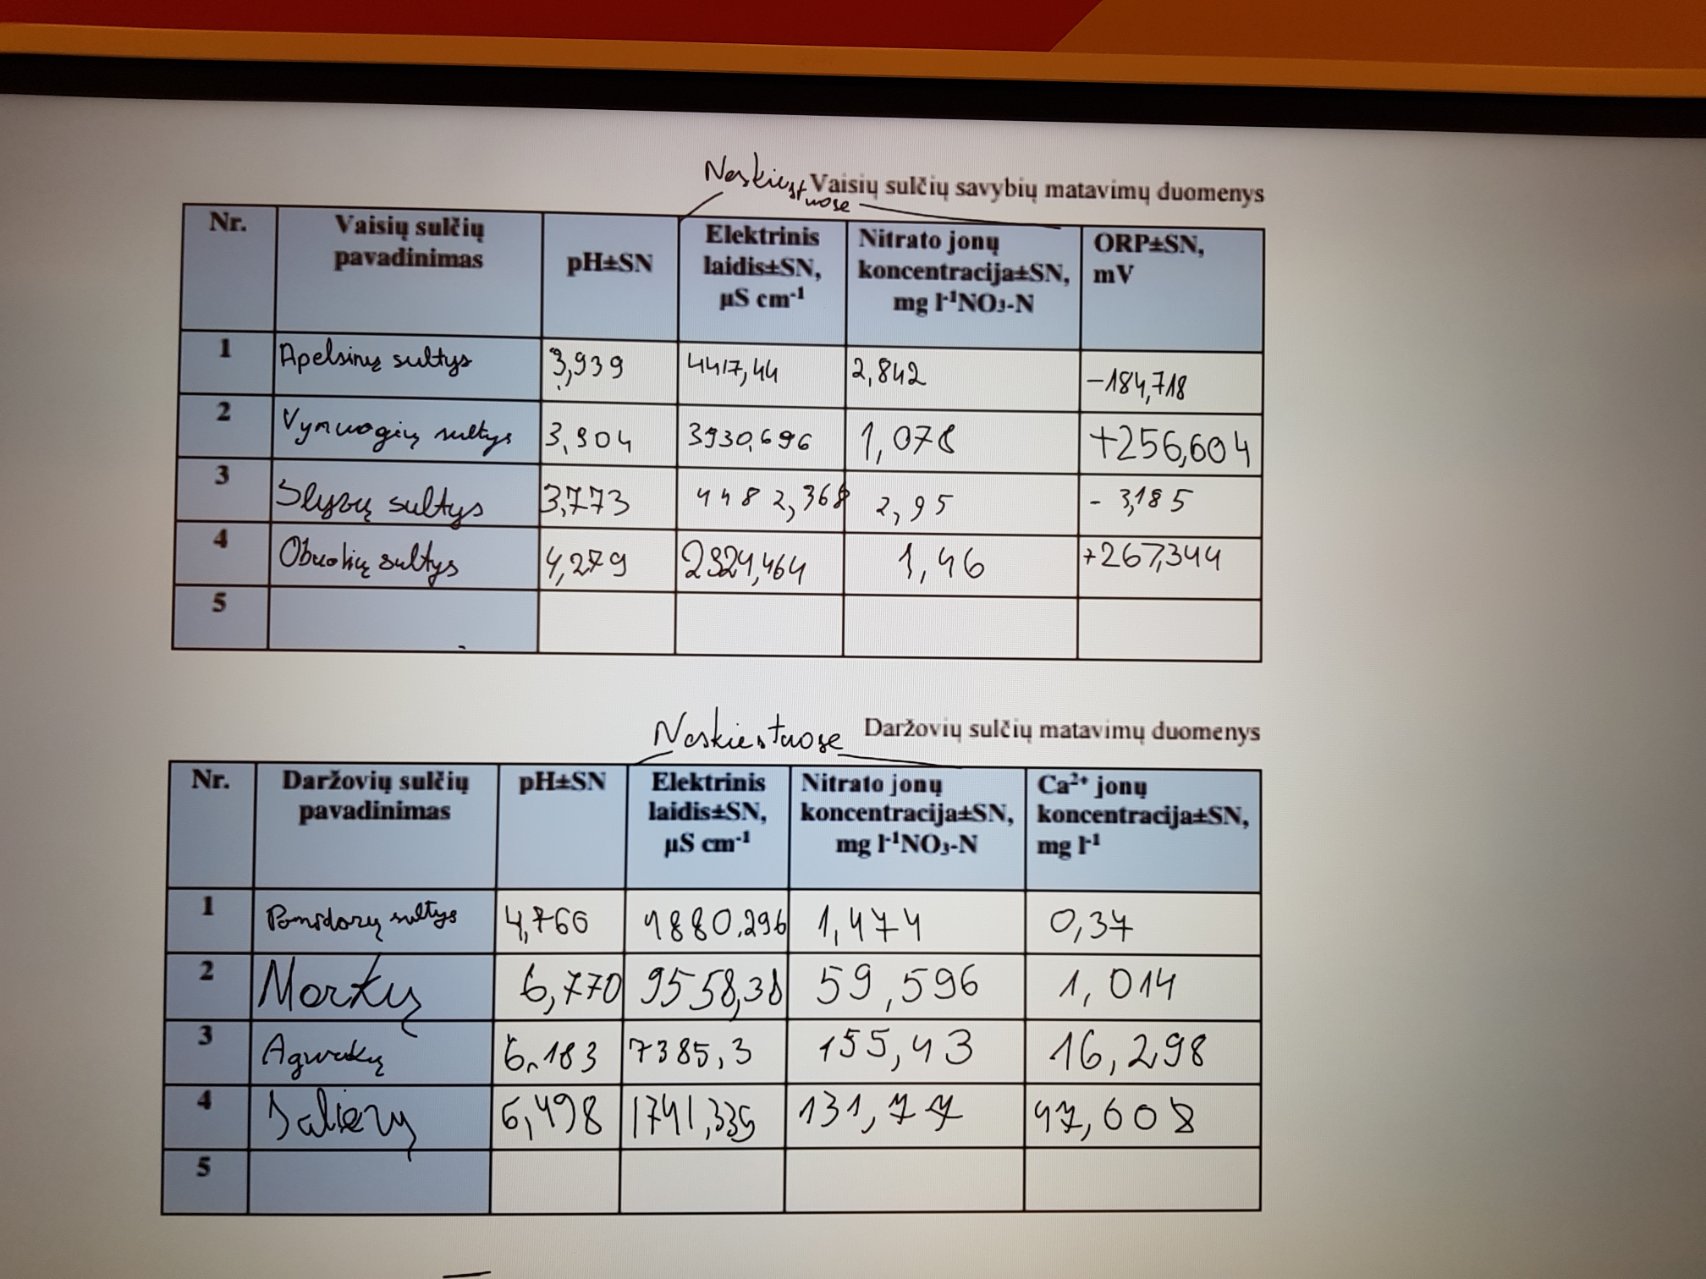 Neskiestuose
Vaisių sulčių savybių matavimų duomenys
Nr. Vaisių sulčių pavadinimas pH±SN Elektrinis laidis±SN, µS cm⁻¹ Nitrato jonų koncentracija±SN, mg l⁻¹NO₃-N ORP±SN, mV
1 Apelsinų sultys 3,939 4417,44 2,842 -184,718
2 Vynuogių sultys 3,904 3930,696 1,078 +256,604
3 Slyvų sultys 3,773 4482,368 2,95 - 3,185
4 Obuolių sultys 4,279 2324,464 1,46 +267,344
5
Neskiestuose
Daržovių sulčių matavimų duomenys
Nr. Daržovių sulčių pavadinimas pH±SN Elektrinis laidis±SN, µS cm⁻¹ Nitrato jonų koncentracija±SN, mg l⁻¹NO₃-N Ca²⁺ jonų koncentracija±SN, mg l⁻¹
1 Pomidorų sultys 4,766 1880,296 1,474 0,37
2 Morkų 6,770 9558,38 59,596 1,014
3 Agurkų 6,183 7385,3 155,43 16,298
4 Salierų 6,498 1741,335 131,77 47,608
5